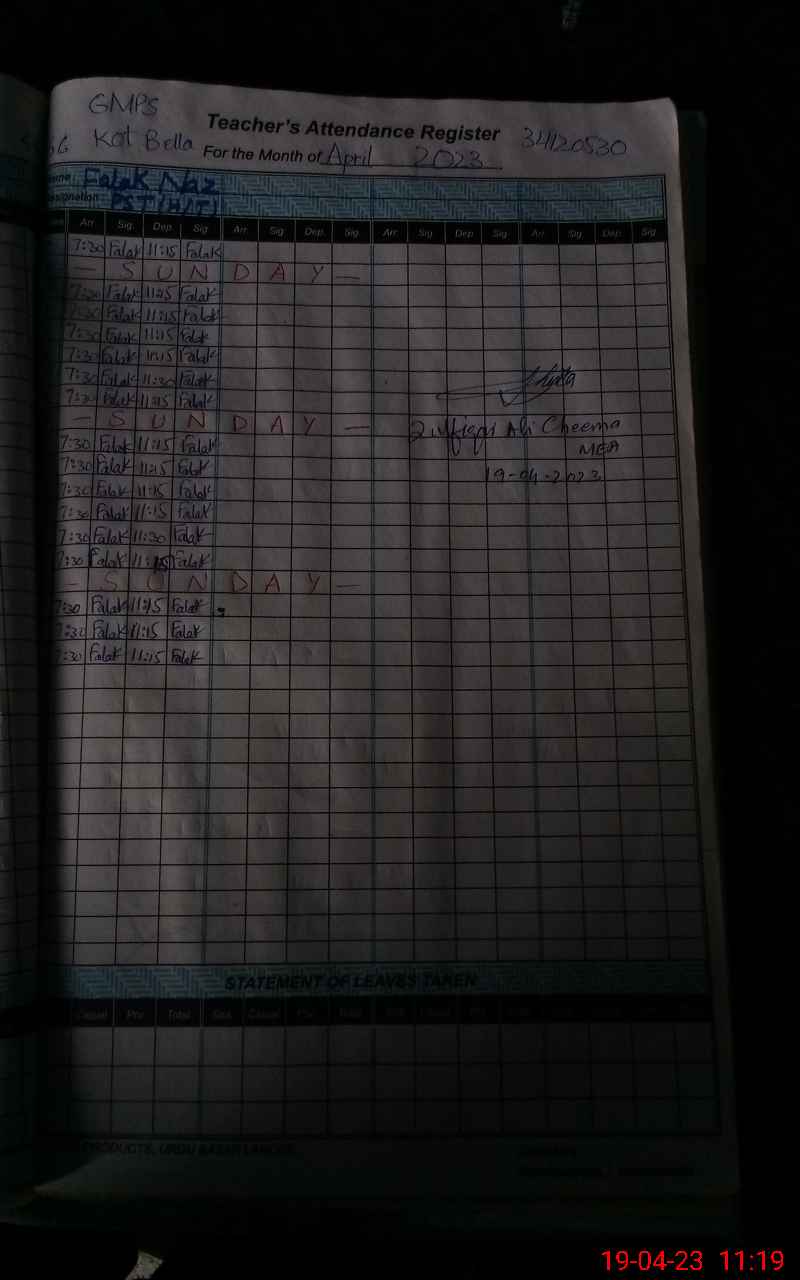 GMPS
Kot Bella
Teacher's Attendance Register
34120530
For the Month of April 2023
Falak Naz
esignation PST(H/T)
Arr. Sig. Dep. Sig. Arr. Sig. Dep. Sig. Arr. Sig. Dep. Sig. Arr. Sig. Dep. Sig.
7:30 Falak 11:15 Falak
— S U N D A Y —
7:30 Falak 11:15 Falak
7:30 Falak 11:15 Falak
7:30 Falak 11:15 Falak
7:30 Falak 11:15 Falak
7:30 Falak 11:30 Falak
7:30 Falak 11:15 Falak
— S U N D A Y —
Ali Cheema
7:30 Falak 11:15 Falak
MEA
7:30 Falak 11:15 Falak
19-04-2023
7:30 Falak 11:15 Falak
7:30 Falak 11:15 Falak
7:30 Falak 11:30 Falak
7:30 Falak 11:15 Falak
— S U N D A Y —
7:30 Falak 11:15 Falak
7:30 Falak 11:15 Falak
7:30 Falak 11:15 Falak
STATEMENT OF LEAVES TAKEN
Casual Prv. Total
PRODUCTS, URDU BAZAR LAHORE
19-04-23 11:19